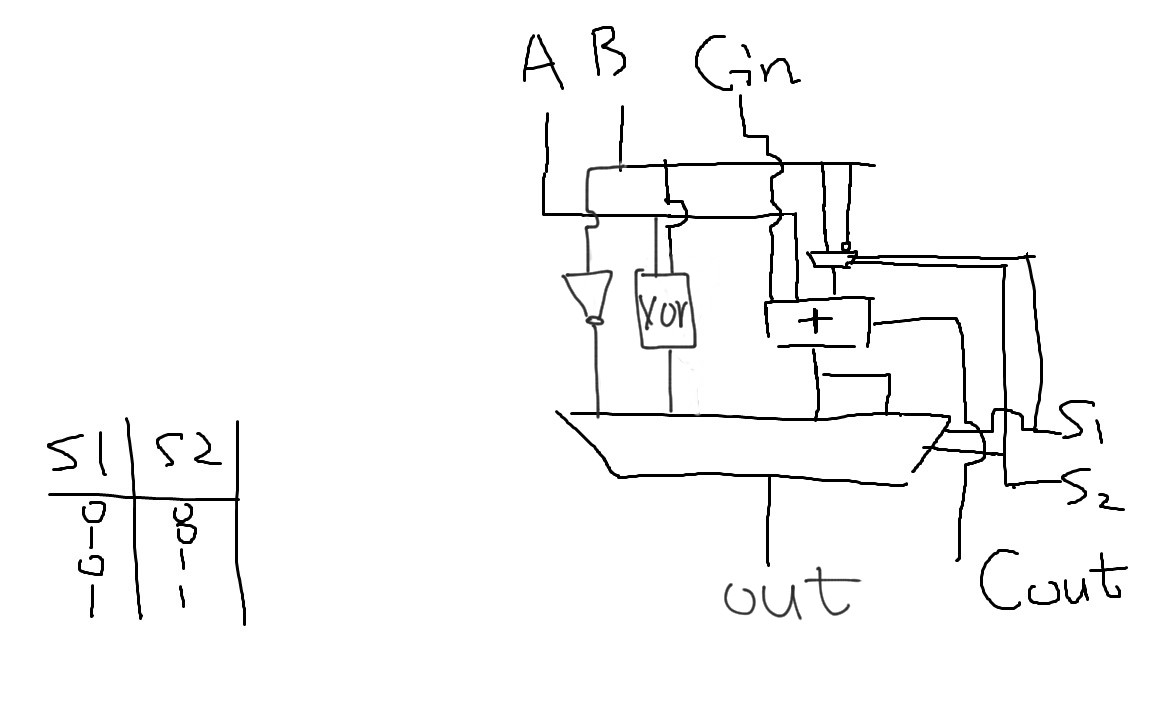 A B Cin
Xor
+
S1
S2
out
Cout
S1 S2
0 0
1 0
0 1
1 1